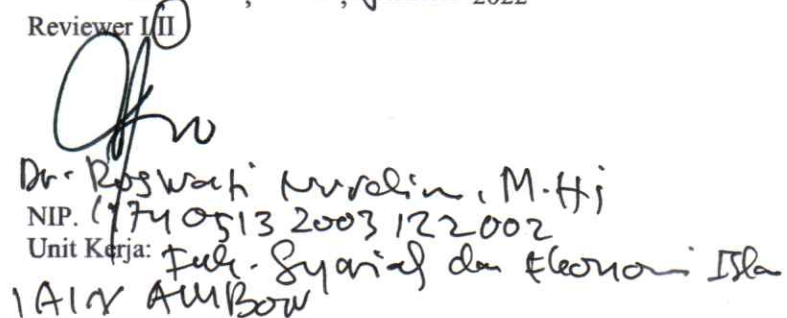 2022
Reviewer I/II
Dr. Roswati Nurdin, M.Hi
NIP. 197405132003122002
Unit Kerja: Fak. Syariah dan Ekonomi Isla
IAIN AMBON